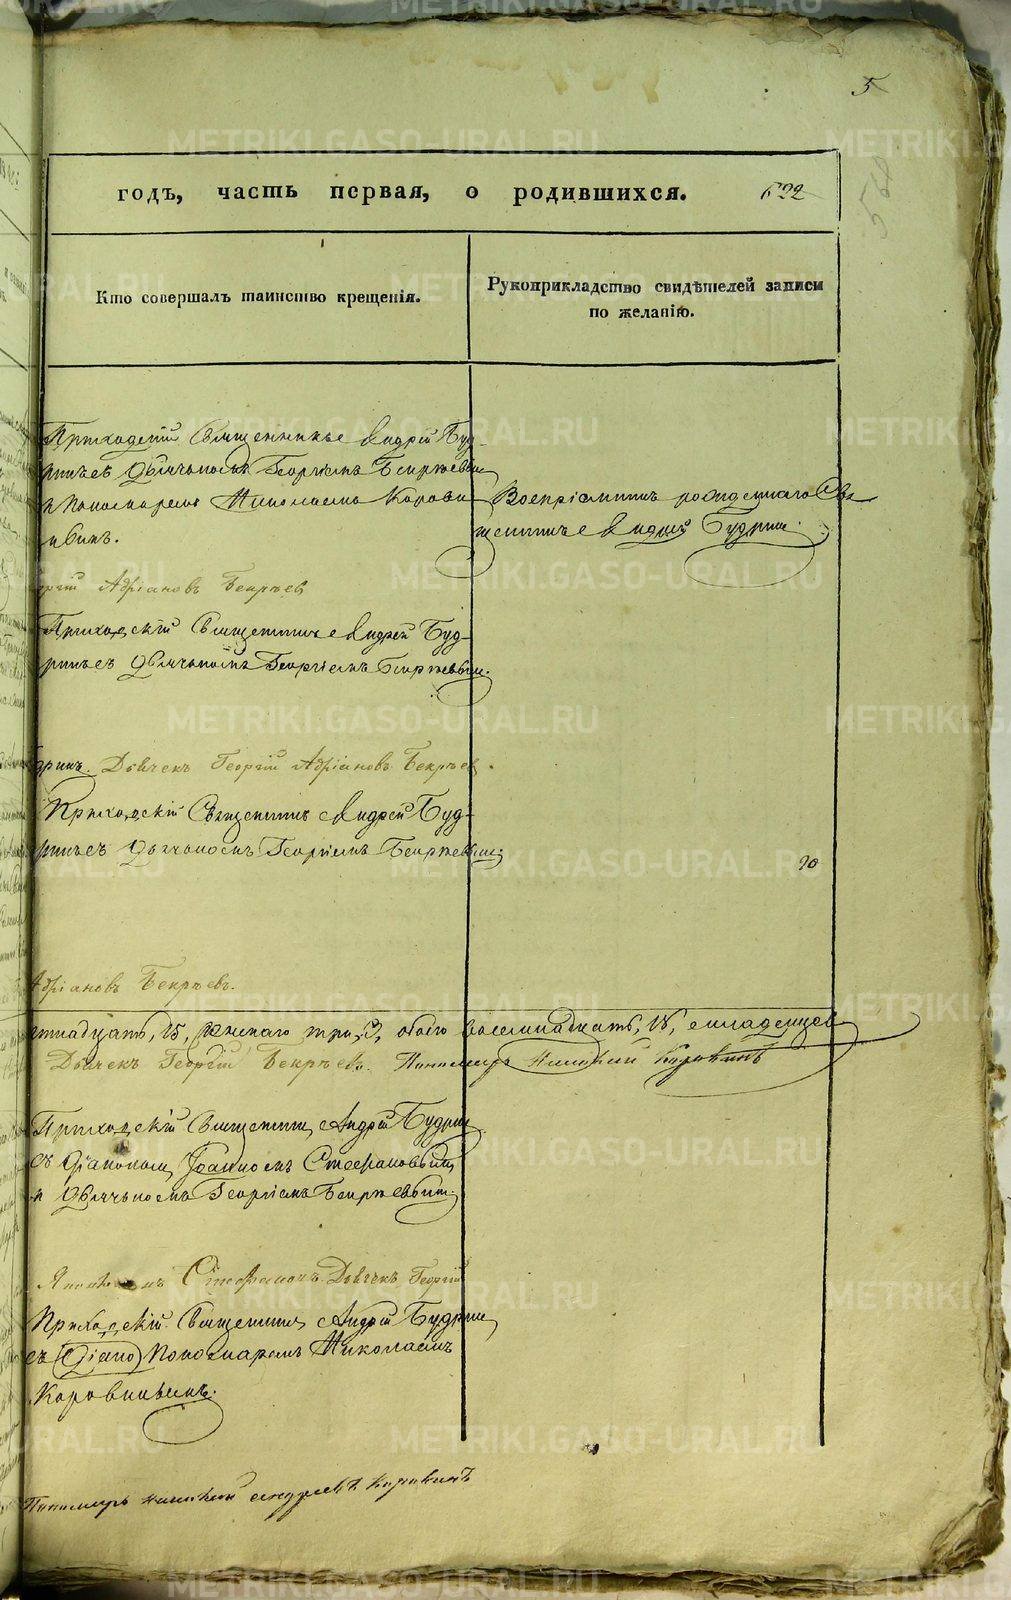 METRIKI.GASO-URAL.RU
5
годъ, часть первая, о родившихся. 622
Кто совершалъ таинство крещенія.
Рукоприкладство свидѣтелей записи
по желанію.
Приходскій Священникъ Андрей Буд-
ринъ съ Дьячькомъ Георгіемъ Бекряевымъ
и Пономаремъ Николаемъ Корови-
нымъ.
Воспріемникъ рожденнаго Свя-
щенникъ Андрей Будринъ.
Адріановъ Бекряевъ
Приходскій Священникъ Андрей Буд-
ринъ съ Дьячькомъ Георгіемъ Бекряевымъ.
Дьячекъ Георгій Адріановъ Бекряевъ.
Приходскій Священникъ Андрей Буд-
ринъ съ Дьячькомъ Георгіемъ Бекряевымъ.
Адріановъ Бекряевъ.
15, женскаго три, 3, обоего восемнадцать, 18, младенцевъ
Дьячекъ Георгій Бекряевъ. Пономарь Николай Коровинъ
Приходскій Священникъ Андрей Будринъ
съ Діакономъ Іоанномъ Стефановымъ
и Дьячькомъ Георгіемъ Бекряевымъ.
Стефановъ Дьячекъ Георгій
Приходскій Священникъ Андрей Будринъ
съ (Діако) Пономаремъ Николаемъ
Коровинымъ.
Пономарь Николай Андреевъ Коровинъ